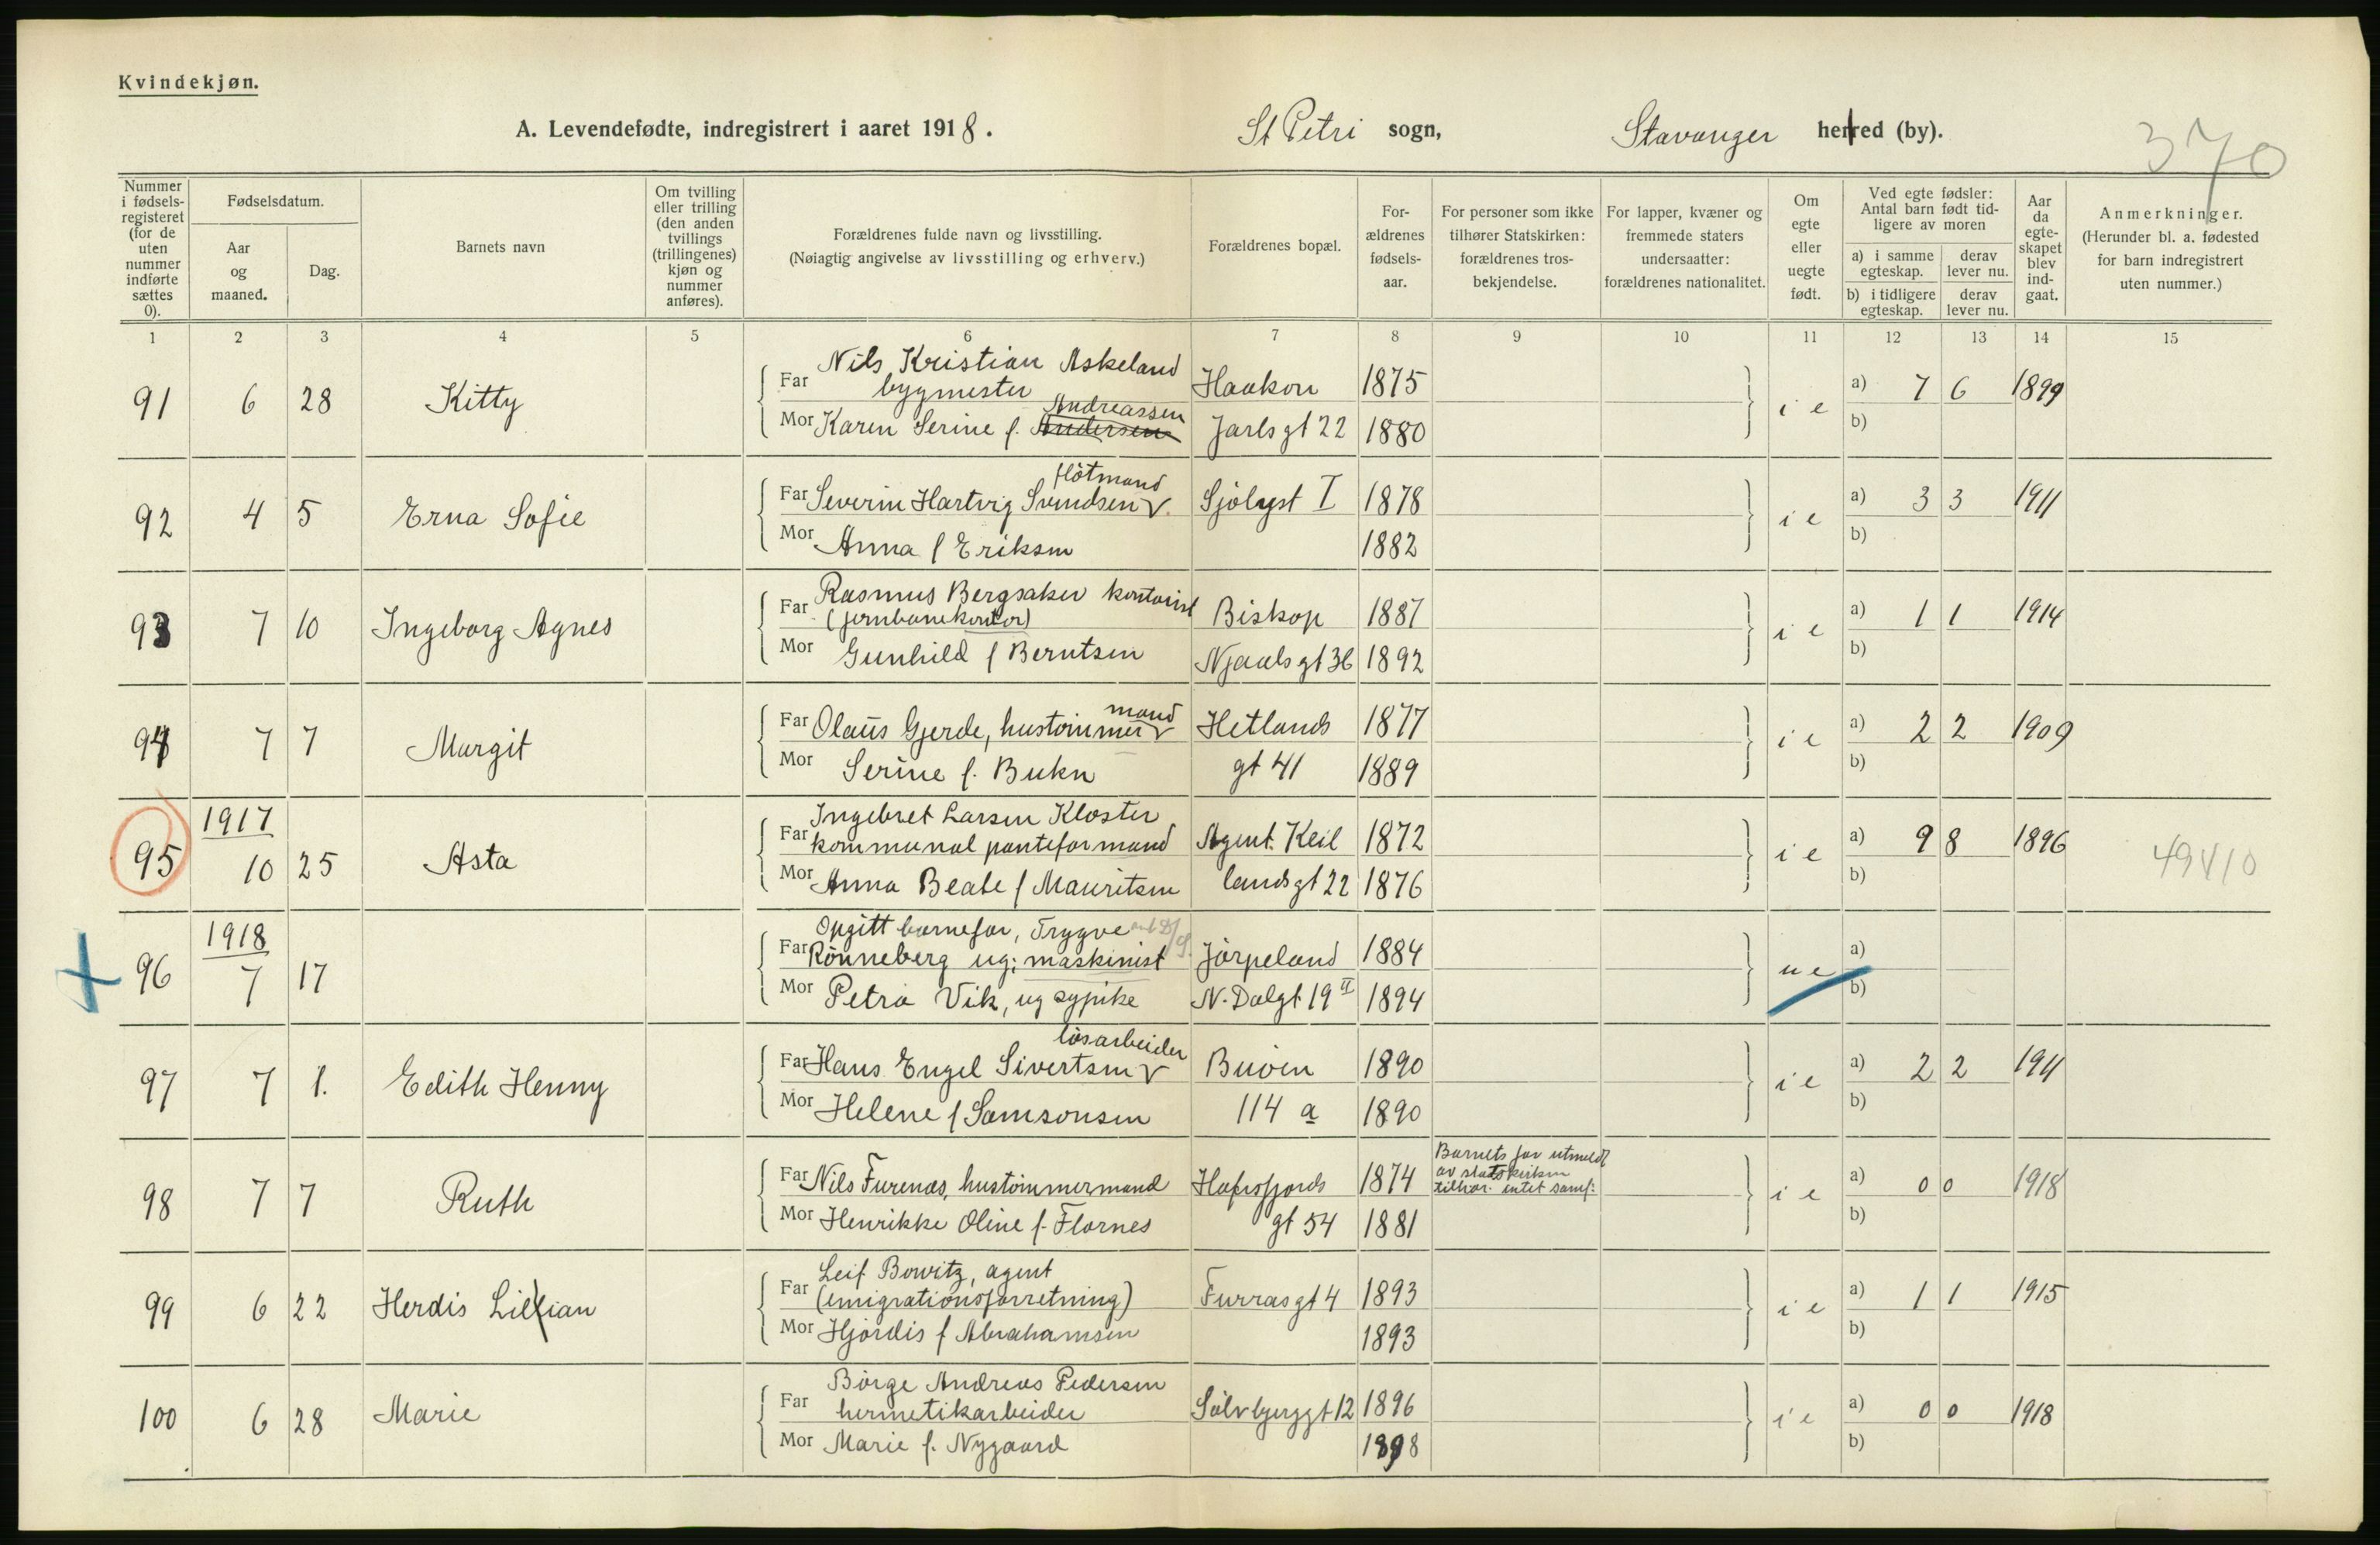 Kvindekjøn.
A. Levendefødte, indregistrert i aaret 1918. St Petri sogn, Stavanger herred (by).
370
Nummer i fødsels-registeret (for de uten nummer indførte sættes 0).
Fødselsdatum.
Aar og maaned.
Dag.
Barnets navn
Om tvilling eller trilling (den anden tvillings (trillingenes) kjøn og nummer anføres).
Forældrenes fulde navn og livsstilling.
(Nøiagtig angivelse av livsstilling og erhverv.)
Forældrenes bopæl.
For-ældrenes fødsels-aar.
For personer som ikke tilhører Statskirken: forældrenes tros-bekjendelse.
For lapper, kvæner og fremmede staters undersaatter: forældrenes nationalitet.
Om egte eller uegte født.
Ved egte fødsler: Antal barn født tid-ligere av moren
a) i samme egteskap. derav lever nu.
b) i tidligere egteskap. derav lever nu.
Aar da egte-skapet blev ind-gaat.
Anmerkninger.
(Herunder bl. a. fødested for barn indregistrert uten nummer.)
1 2 3 4 5 6 7 8 9 10 11 12 13 14 15
Nils Kristian Askeland
91 6 28 Kitty Far bygmester Haakon 1875 i e a) 7 6 1899
Andreassen
Mor Karen Serine f. Andersen Jarls gt 22 1880 b)
flötmand
92 4 5 Erna Sofie Far Severin Hartvig Svendsen v. Sjölyst I 1878 i e a) 3 3 1911
Mor Anna f Eriksen 1882 b)
Rasmus Bergsaker kontorist
93 7 10 Ingeborg Agnes Far (jernbanekontor) Biskop 1887 i e a) 1 1 1914
Mor Gunhild f Berntsen Njaals gt 36 1892 b)
mand
94 7 7 Margit Far Olaus Gjerde, hustömmer v Hetlands 1877 i e a) 2 2 1909
Mor Serine f. Bukn gt 41 1889 b)
1917
Ingebret Larsen Kloster
95 10 25 Asta Far kommunal panteformand Agent. Keil 1872 i e a) 9 8 1896 49410
Mor Anna Beate f Mauritsen lands gt 22 1876 b)
1918
Opgitt barnefar, Trygve
96 7 17 Far Rönneberg ug; maskinist Jörpeland 1884 u e a)
Mor Petra Vik, ug sypike N. Dalgt 19 II 1894 b)
lösarbeider
97 7 1. Edith Henny Far Hans Engel Sivertsen v Buöen 1890 i e a) 2 2 1911
Mor Helene f Samsonsen 114 a 1890 b)
Barnets far utmeldt
av statskirken
tilhör. intet samf:
98 7 7 Ruth Far Nils Furenæs, hustömmermand Hafrsfjords 1874 i e a) 0 0 1918
Mor Henrikke Oline f. Flornes gt 54 1881 b)
Leif Bowitz, agent
99 6 22 Herdis Lillian Far (emigrationsforretning) Furras gt 4 1893 i e a) 1 1 1915
Mor Hjördis f Abrahamsen 1893 b)
Börge Andreas Pedersen
100 6 28 Marie Far hermetikarbeider Sölvbjerggt 12 1896 i e a) 0 0 1918
Mor Marie f. Nygaard 1898 b)